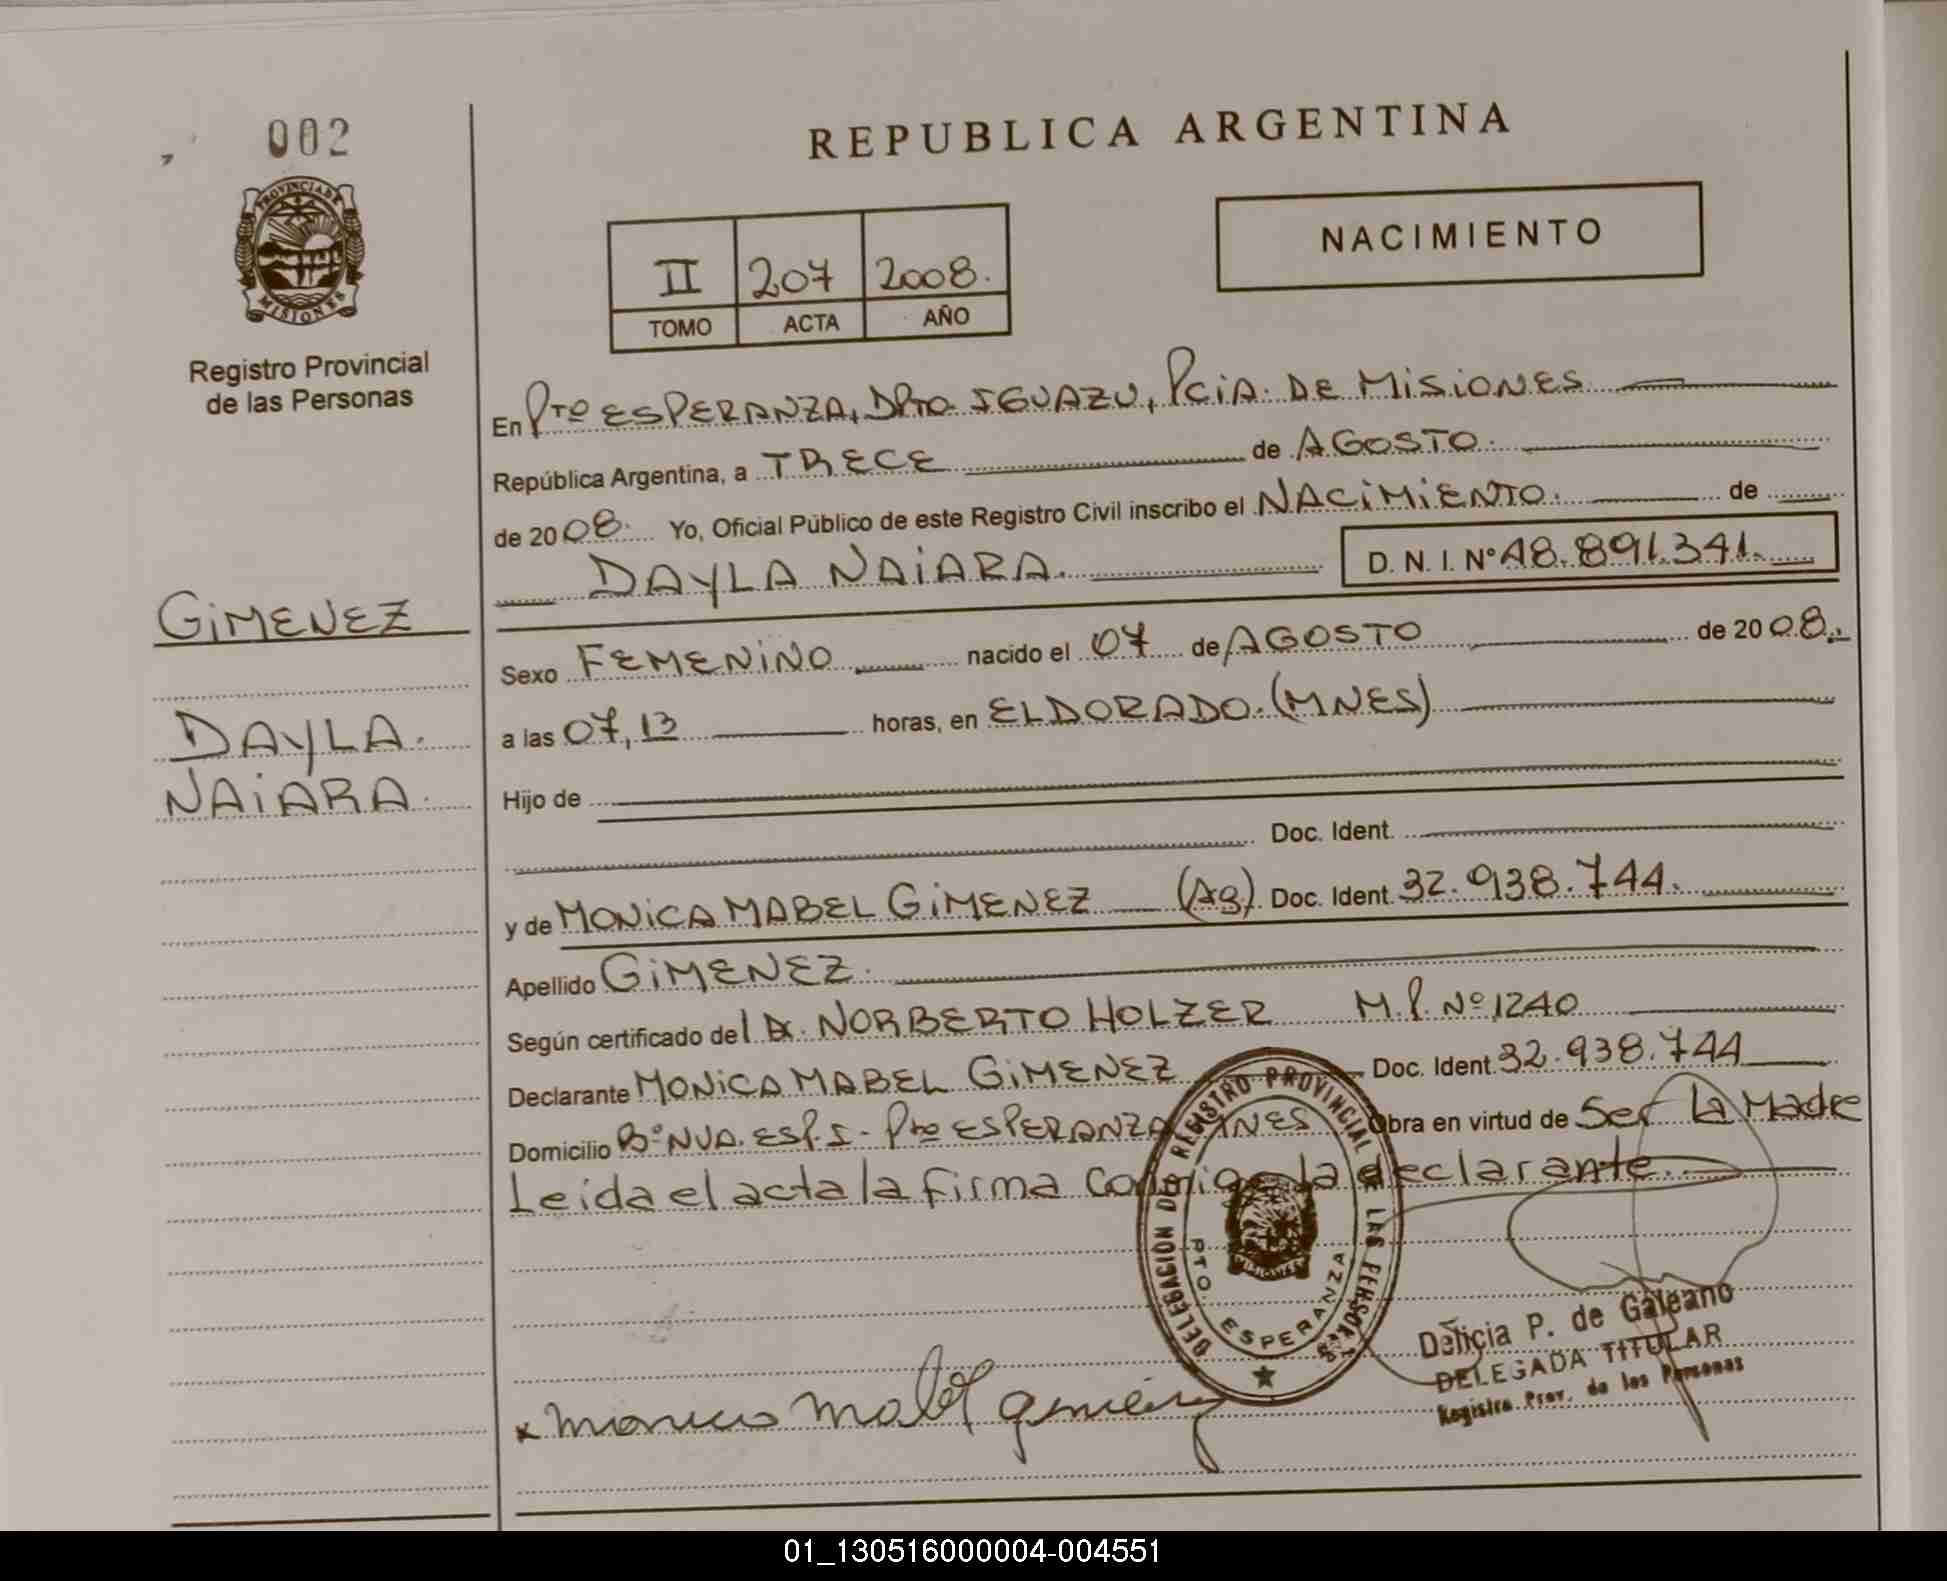 002
REPUBLICA ARGENTINA
PROVINCIA DE
MISIONES
NACIMIENTO
II 207 2008.
TOMO ACTA AÑO
Registro Provincial
de las Personas
En Pto ESPERANZA, DPto IGUAZU, PCIA. DE MISIONES
República Argentina, a TRECE de AGOSTO.
de 2008. Yo, Oficial Público de este Registro Civil inscribo el NACIMIENTO. de
DAYLA NAIARA. D. N. I. Nº 48.891.341.
GIMENEZ
DAYLA.
NAIARA.
Sexo FEMENINO nacido el 07 de AGOSTO de 2008.
a las 07,13 horas, en ELDORADO. (MNES)
Hijo de
Doc. Ident.
y de MONICA MABEL GIMENEZ (Ag) Doc. Ident. 32.938.744.
Apellido GIMENEZ.
Según certificado del Dr. NORBERTO HOLZER M.P. Nº 1240
Declarante MONICA MABEL GIMENEZ Doc. Ident. 32.938.744
Domicilio Bº NVA. ESP. I - Pto ESPERANZA MNES Obra en virtud de Ser La Madre
Leida el acta la firma conmigo la declarante.
DELEGACION DEL REGISTRO PROVINCIAL DE LAS PERSONAS
PTO. ESPERANZA
MISIONES
Delicia P. de Galeano
DELEGADA TITULAR
Registro Prov. de las Personas
x Monica Mabel Gimenez
01_130516000004-004551